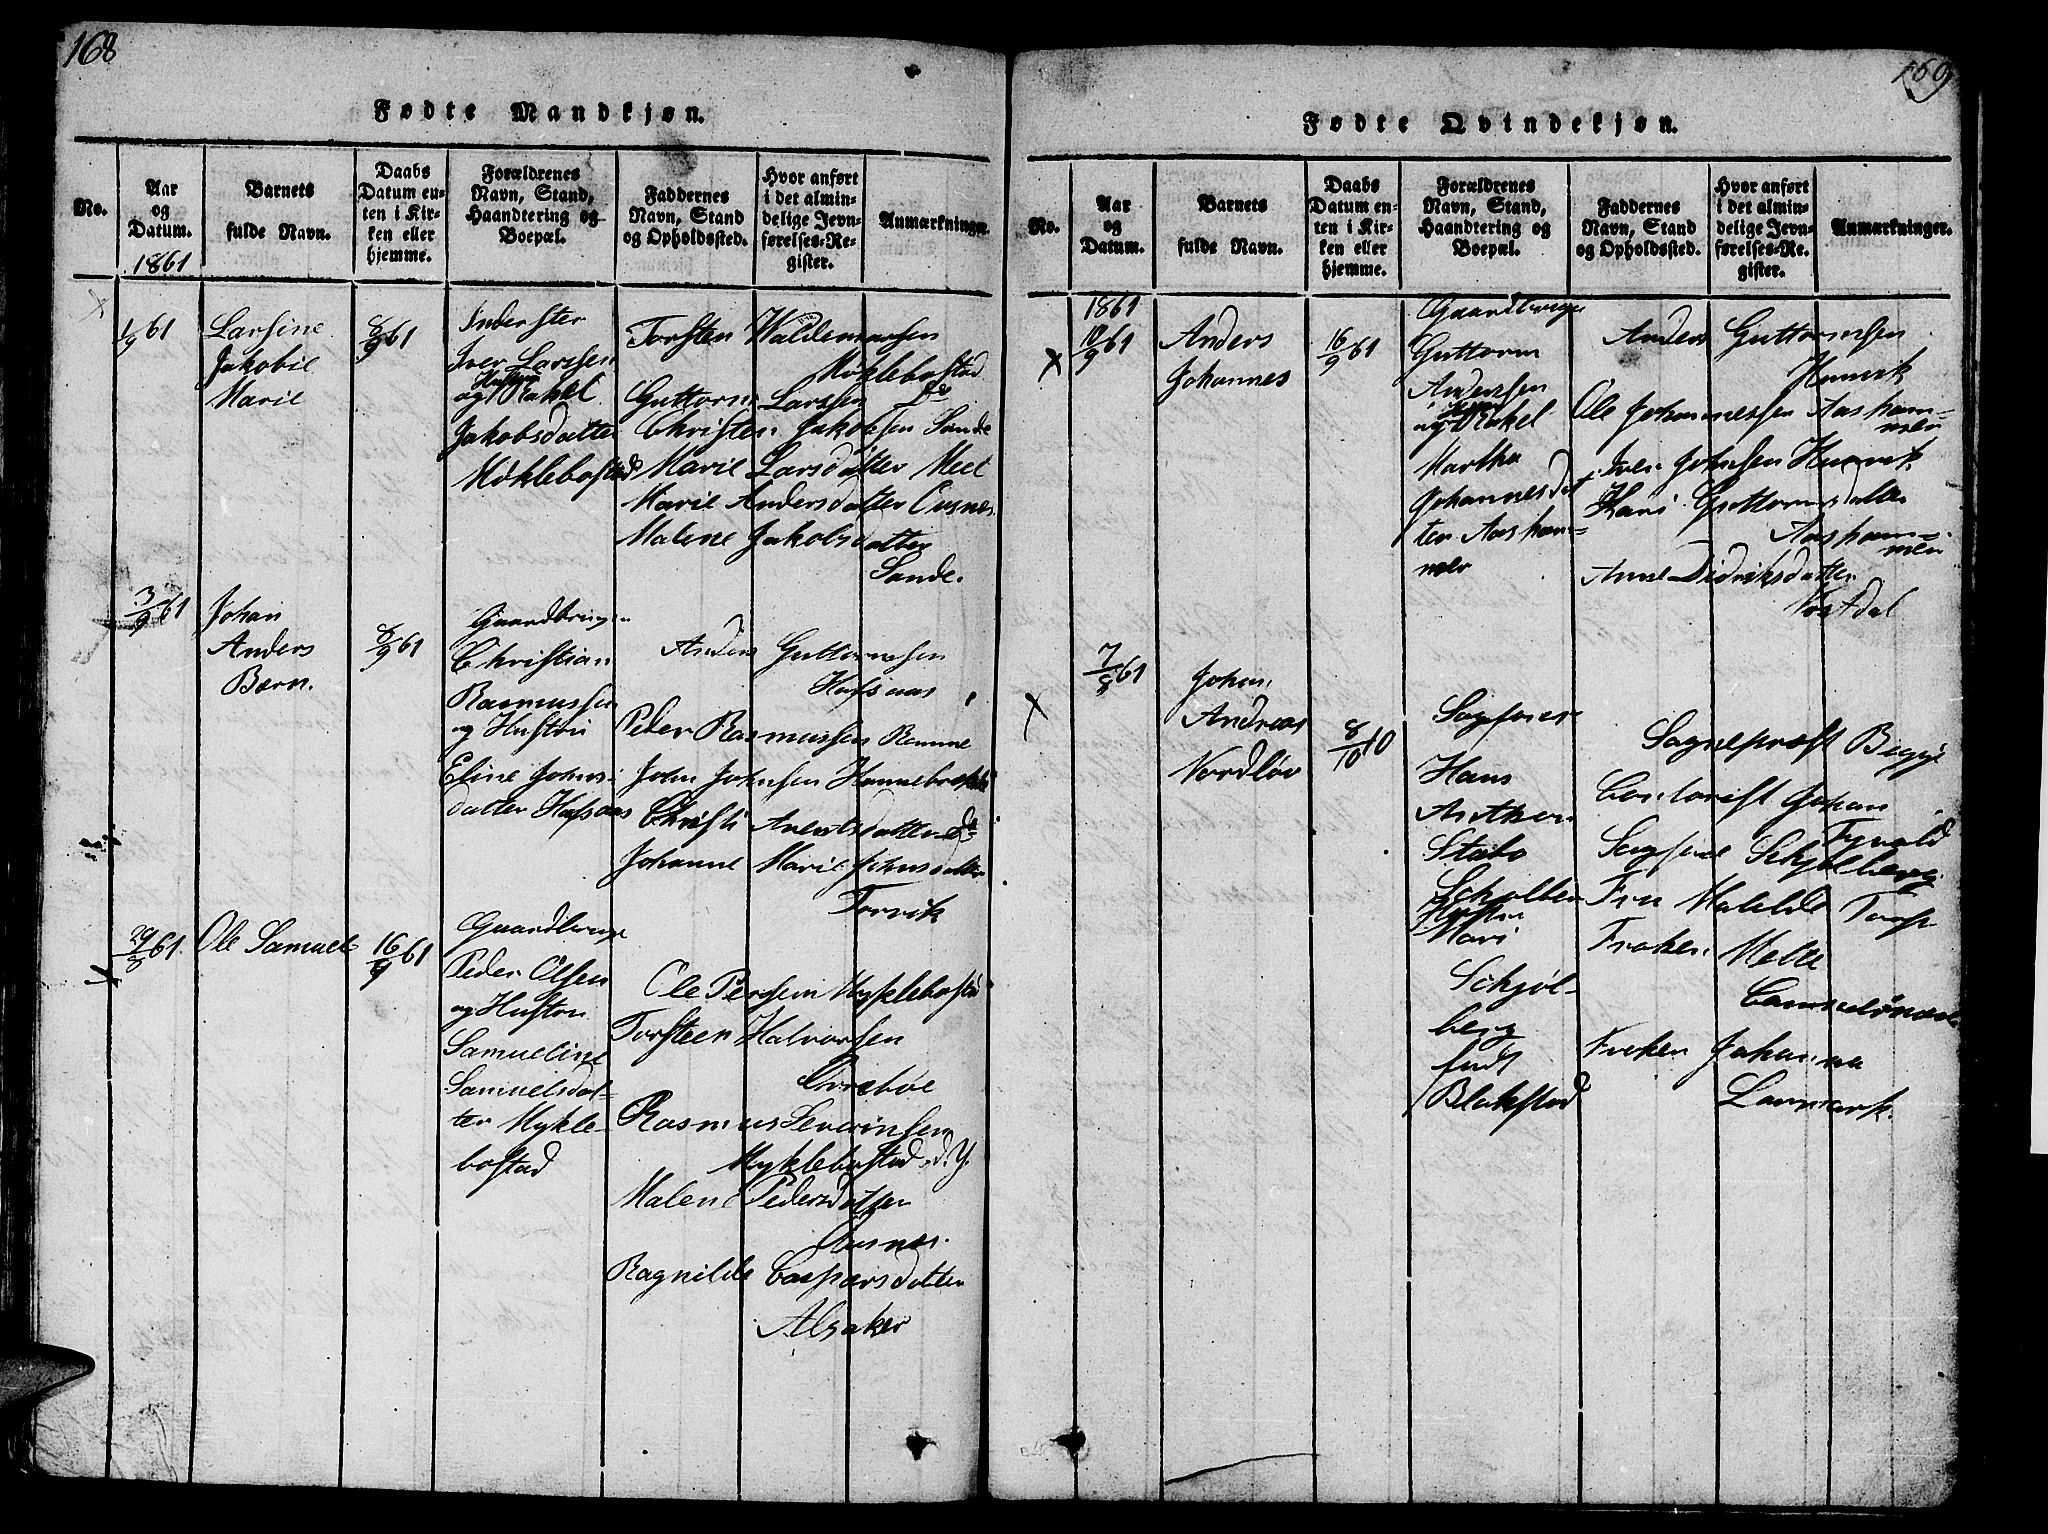 168
Fødte Mandkjøn.
No.
Aar
og
Datum.
1861
Barnets
fulde Navn.
Daabs
Datum en-
ten i Kir-
ken eller
hjemme.
Forældrenes
Navn, Stand,
Haandtering og
Boepæl.
Faddernes
Navn, Stand
og Opholdssted.
Hvor anført
i det almin-
delige Jevn-
førelses-Re-
gister.
Anmærkninger.
1/9 61
Larsine
Jakobie
Marie
8/9 61
Inderster
Iver Larssen
og Hustru Rakel
Jakobsdatter
Møklebostad
Torsten Waldemarsen
Møklebostad
Guttorm Larssen do
Christen Jakobsen Sande
Marie Larsdatter Meel
Marie Andersdatter Ousnes
Malene Jakobsdatter
Sande.
3/9 61
Johan
Anders
Bærn.
8/9 61
Gaardbruger
Christian
Rasmussen
og Hustru
Eline Johns-
datter Hafsaas
Anders Guttormsen
Hafsaas
Peder Rasmussen Remme
John Johnsen Hannebrekke
Christi Arentsdatter do
Johanne Marie Johnsdatter
Torvik
29/8 61
Ole Samuel
16/9 61
Gaardbruger
Peder Olsen
og Hustru
Samueline
Samuelsdat-
ter Mykle-
bostad
Ole Persen Myklebostad
Torsteen Halvorsen
Rasmus Severinsen
Myklebostad d. Y.
Malene Pedersdatter
Ousnes.
Ragnilde Caspersdatter
Alsaker
169
Fødte Qvindekjøn.
No.
Aar
og
Datum.
Barnets
fulde Navn.
Daabs
Datum en-
ten i Kir-
ken eller
hjemme.
Forældrenes
Navn, Stand,
Haandtering og
Boepæl.
Faddernes
Navn, Stand
og Opholdssted.
Hvor anført
i det almin-
delige Jevn-
førelses-Re-
gister.
Anmærkninger.
1861
10/9 61
Anders
Johannes
16/9 61
Gaardbruger
Guttorm
Anderssen
og Hustru Rakel
Martha
Johannesdat
ter Aasham-
mer
Anders Guttormsen
Humvik
Ole Johannessen Aasham-
mer
Iver Johnsen Humvik
Kari Guttormsdatter
Aasham-
mer
Anne Didriksdatter
Nostdal
7/8 61
Johan
Andreas
Nordløv
8/10 10
Sagfører
Hans
Anthon
Stabo
Hustru
Mari
Schjøl-
berg
født
Blakstad
Sognepræst Bugge
Contorist Johan
Sagfører Schjølberg
Fru Matilde Torp
Frøken Mette
Frøken Johanna